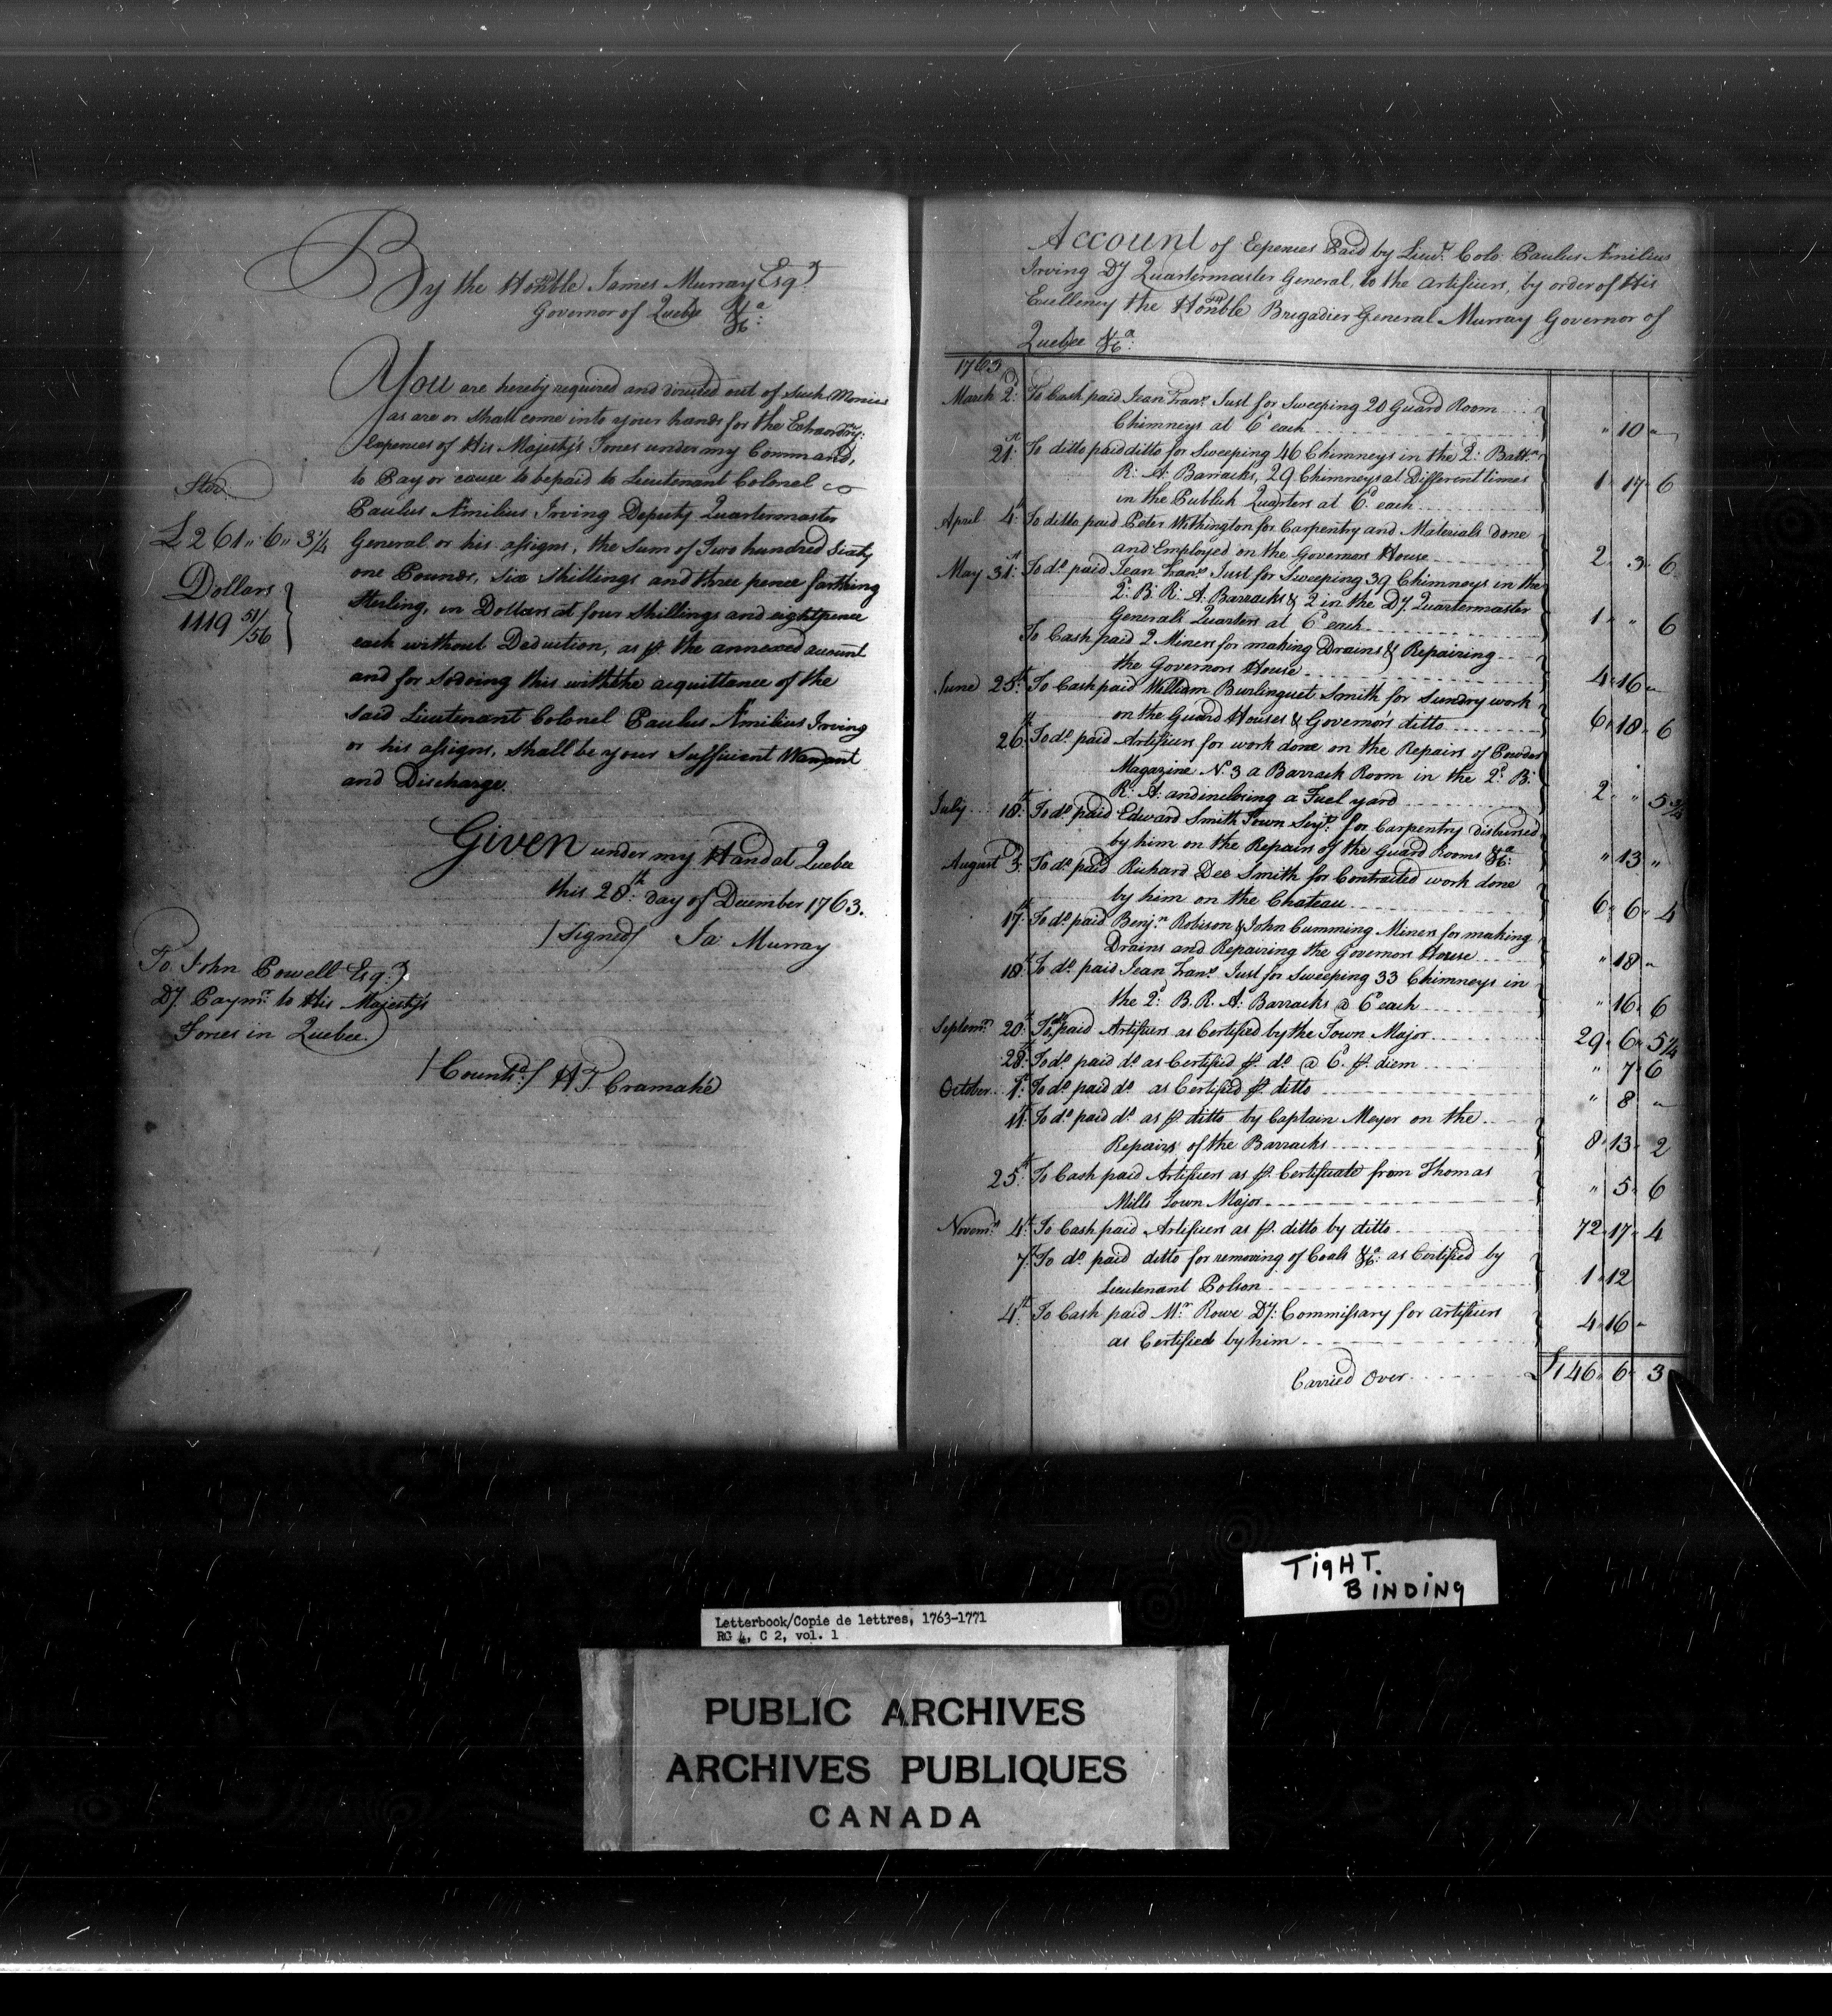 By the Honble James Murray Esqr
Governor of Quebec &ca:
You are hereby required and directed out of such Monies
as are or shall come into your hands for the Extraordry:
Expences of His Majesty's Forces under my Command,
to Pay or cause to be paid to Lieutenant Colonel
Paulus Æmilius Irving Deputy Quartermaster
General or his assigns, the Sum of Two hundred Sixty
one Pounds, Six Shillings and three pence farthing
Sterling, in Dollars at four Shillings and eightpence
each without Deduction, as ⅌ the annexed account
and for so doing this with the acquittance of the
said Lieutenant Colonel Paulus Æmilius Irving
or his assigns, shall be your sufficient Warrant
and Discharge.
Ster.
£261" 6" 3¼
Dollars
1119 51/56
Given under my Hand at Quebec
this 28th: day of December 1763.
/Signed/ Ja Murray
To John Powell Esq:r
Dy. Paymr. to His Majesty's
Forces in Quebec.
/Countd:/ H T Cramahé
Account of Expences Paid by Lieut. Colo. Paulus Æmilius
Irving Dy Quartermaster General, to the Artificers, by order of His
Excellency the Honble Brigadier General Murray Governor of
Quebec &ca:
1763
March 2d: To Cash paid Jean Frans. Just for Sweeping 20 Guard Room
Chimneys at 6d each " 10 "
21st: To ditto paid ditto for Sweeping 46 Chimneys in the 2d: Battn.
R: A: Barracks, 29 Chimneys at Different times
in the Publick Quarters at 6d. each 1" 17" 6
April 4th To ditto paid Peter Withington for Carpentry and Materials done
and Employed on the Governors House 2" 3" 6
May 31st: To do. paid Jean Frans. Just for Sweeping 39 Chimneys in the
2d: B: R: A: Barracks & 2 in the Dy. Quartermaster
Generals Quarters at 6d each 1" " 6
To Cash paid 2 Miners for making Drains & Repairing
the Governors House 4" 16 "
June 25th: To Cash paid William Burlinguet Smith for Sundry work
on the Guard Houses & Governors ditto 6" 18" 6
26th: To do. paid Artificers for work done on the Repairs of Powder
Magazine No. 3 a Barrack Room in the 2d: B:
R: A: and inclosing a Fuel yard 2 " 5¾
July 18th: To do. paid Edward Smith Town Serjt. for Carpentry disbursed
by him on the Repairs of the Guard Rooms &ca: " 13 "
August 3d: To do. paid Richard Dee Smith for Contracted work done
by him on the Chateau 6" 6" 4
17th: To do. paid Benjn. Robison & John Cumming Miners for making
Drains and Repairing the Governors House " 18 "
18th: To do. paid Jean Frans. Just for Sweeping 33 Chimneys in
the 2d: B. R. A: Barracks @ 6d each " 16" 6
Septemr. 20th: To do. paid Artificers as Certified by the Town Major 29" 6" 5¼
28th: To do. paid do. as Certified ⅌ do. @ 6d. ⅌ diem " 7" 6
October 1st: To do. paid do. as Certified ⅌ ditto " 8 "
11th: To do. paid do. as ⅌ ditto by Captain Meyer on the
Repairs of the Barracks 8" 13" 2
25th: To Cash paid Artificers as ⅌ Certificate from Thomas
Mills Town Major " 5" 6
Novemr. 4th: To Cash paid Artificers as ⅌ ditto by ditto 72" 17" 4
7th: To do. paid ditto for removing of Coals &ca: as Certified by
Lieutenant Polson 1" 12
4th: To Cash paid Mr. Rowe Dy: Commissary for artificers
as Certified by him 4" 16 "
Carried Over £146" 6" 3
TigHT.
BINDINg
Letterbook/Copie de lettres, 1763-1771
RG 4, C 2, vol. 1
PUBLIC ARCHIVES
ARCHIVES PUBLIQUES
CANADA